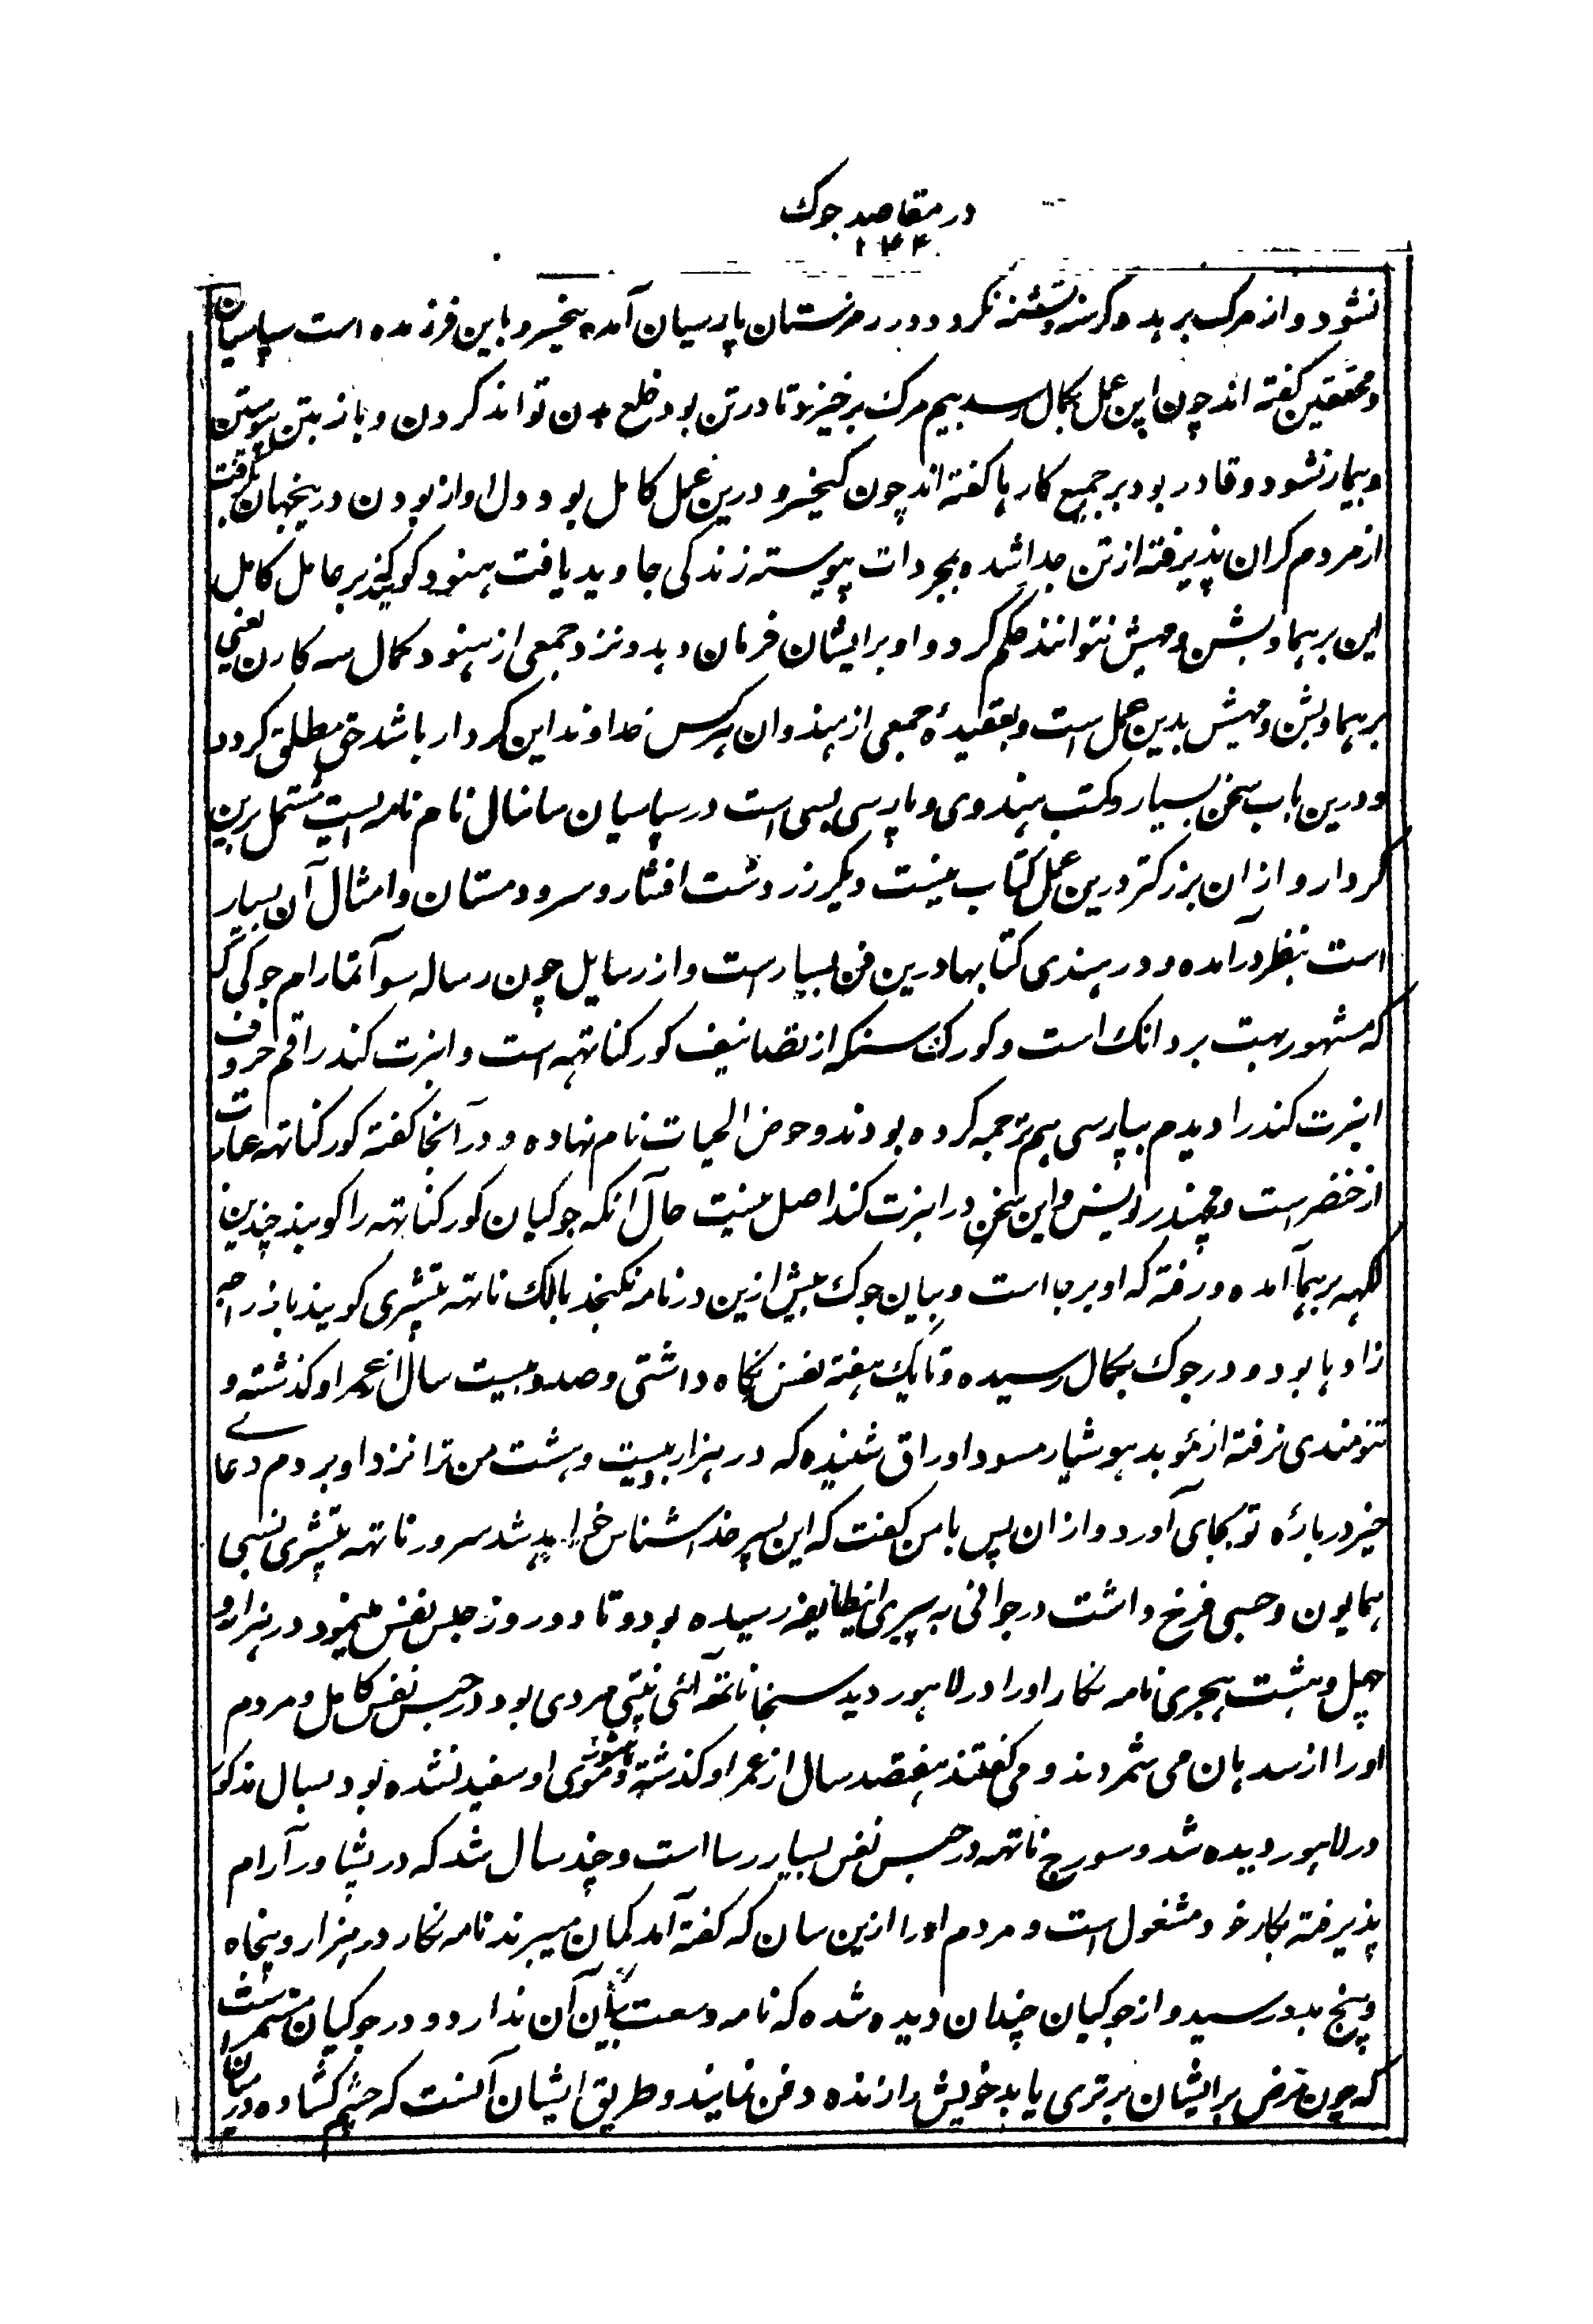 در مقاصد جوک
۱۴۴
نشود و از مرک برہد و کرسنہ و تشنہ نکردد و در رمزستان پارسیان آمدہ کیخسرو باین فرز ندہ است سپاسیان
و محققین کفتہ اند چون این عمل بکمال رسد بیم مرک برخیزد و تا در تن بود خلع بدن تواند کردن و باز بتن پیوستن
و بیمار نشود و قادر بود بر جمیع کارہا کفتہ اند چون کیخسرو درین عمل کامل بود و دل او از بودن درینجہان بگرفت
از مردم کران پذیرفتہ از تن جدا شدہ بمجردات پیوستہ زندکی جاوید یافت ہنود کویند بر عامل کامل
این برہما و بشن و مہیش نتوانند حکم کرد و او بر ایشان فرمان دہد و نزد جمعی از ہنود کمال سہ کارن یعنی
برہما و بشن و مہیش بدین عمل است و بعقیدۂ جمعی از ہندوان ہر کس خداوند این کردار باشد حق مطلق کردد
و درین باب سخن بسیار و کتب ہندوی و پارسی بسی است در سپاسیان سامنال نام نامہ ایست مشتمل برین
کردار و از ان بزرکتر درین عمل کتاب نیست دیکر زردشت افشار و سرودمستان و امثال آن بسیار
است بنظر در آمدہ و در ہندی کتابہا درین فن بسیارست و از رسایل چون رسالہ سوآتمارام جوکی کہ
کہ مشہور بہت بردانک است و کورک سنکہ از تصانیف کورکناتہہ است و انبرت کند راقم حروف
انبرت کند را دیدم بپارسی ہم ترجمہ کردہ بودند و حوض الحیات نام نہادہ و در آنجا کفتہ کورکناتہہ عبارت
از خضرست و مچہندر یونس و این سخن در انبرت کند اصل نیست حال آنکہ جوکیان کورکناتہہ را کویند چندین
لکہہ برہما آمدہ و رفتہ کہ او برجا است و بیان جوک بیش ازین در نامہ نکنجد بالک ناتہہ تپشری کویند از راجہ
زادہا بود و در جوک بکمال رسیدہ و تا یک ہفتہ نفس نکاہ داشتی و صد و بیست سال از عمر او کذشتہ و
تنومندی نرفتہ از مؤبد ہوشیار مسود اوراق شنیدہ کہ در ہزار و بیست و ہشت من ترا نزد او بردم دعاے
خیر دربارۂ تو بجای آورد و از ان پس با من کفت کہ این پسر خدا شناس خواہد شد سرور ناتہہ تپشری نسبی
ہمایون و حسبی فرخ داشت در جوانی بہ پیری اینطایفہ رسیدہ بود و تا دو روز حبس نفس مینمود در ہزار و
چہل و ہشت ہجری نامہ نکار او را در لاہور دید سنجا ناتہہ آئی پنتی مردی بود در حبس نفس کامل و مردم
او را از سدہان می شمردند و می کفتند ہفتصد سال از عمر او کذشتہ و ہنوز موی او سفید نشدہ بود بسال مذکور
در لاہور دیدہ شد و سورج ناتہہ در حبس نفس بسیار رسا است و چند سال شد کہ در پشاور آرام
پذیرفتہ بکار خود مشغول است و مردم او را ازین سان کہ کفتہ آمد کمان میبرند نامہ نکار در ہزار و پنجاہ
و پنج بدو رسید و از جوکیان چندان دیدہ شدہ کہ نامہ وسعت بیان آن ندارد و در جوکیان مقررست
کہ چون مرض بر ایشان برتری یابد خویش را زندہ دفن نمایند و طریق ایشان آنست کہ چشم کشادہ درمیان